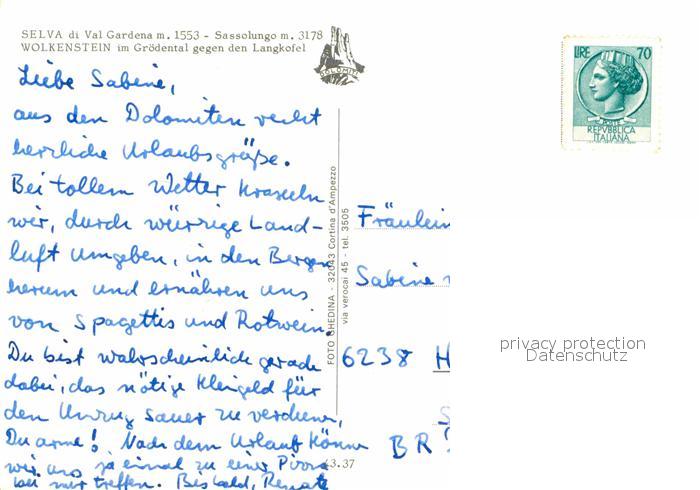 SELVA di Val Gardena m. 1553 - Sassolungo m. 3178
WOLKENSTEIN im Grödental gegen den Langkofel
DOLOMITI
Liebe Sabine,
aus den Dolomiten recht
herzliche Urlaubsgrüße.
Bei tollem Wetter kraxeln
wir, durch würzige Land-
luft umgeben, in den Bergen
herum und ernähren uns
von Spagettis und Rotwein.
Du bist wahrscheinlich gerade
dabei, das nötige Kleingeld für
den Umzug sauer zu verdienen,
Du arme! Nach dem Urlaub können
wir uns ja einmal zu einer Pizza
bei mir treffen. Bis bald, Renate
FOTO GHEDINA - 32043 Cortina d'Ampezzo
via verocai 45 - tel. 3505
43.37
LIRE 70
POSTE
REPVBBLICA
ITALIANA
Fräulein
Sabine
6238 H
BR
privacy protection
Datenschutz